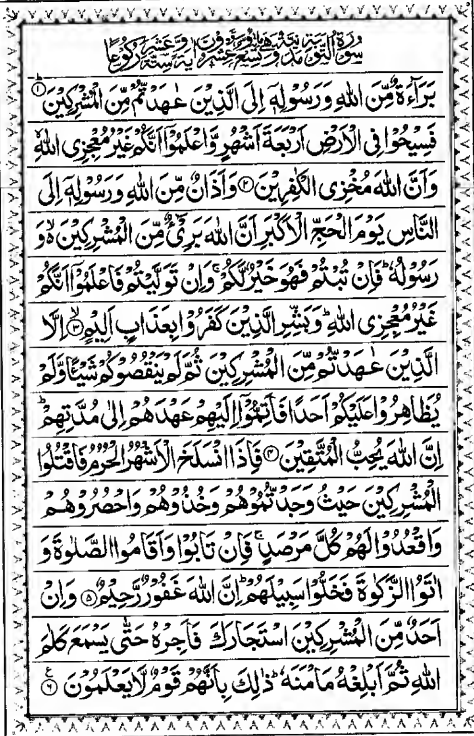 سورة التوبة مدنية وهي مائة وتسع وعشرون اية وستة عشر ركوعا
بَرَآءَةٌ مِّنَ اللهِ وَرَسُوْلِهٖٓ اِلَى الَّذِيْنَ عٰهَدْتُّمْ مِّنَ الْمُشْرِكِيْنَ ؕ﴿۱﴾
فَسِيْحُوْا فِى الْاَرْضِ اَرْبَعَةَ اَشْهُرٍ وَّاعْلَمُوْٓا اَنَّكُمْ غَيْرُ مُعْجِزِى اللهِ ۙ
وَاَنَّ اللهَ مُخْزِى الْكٰفِرِيْنَ ﴿۲﴾ وَاَذَانٌ مِّنَ اللهِ وَرَسُوْلِهٖٓ اِلَى
النَّاسِ يَوْمَ الْحَجِّ الْاَكْبَرِ اَنَّ اللهَ بَرِیْٓءٌ مِّنَ الْمُشْرِكِيْنَ ۙ۬ وَ
رَسُوْلُهٗ ؕ فَاِنْ تُبْتُمْ فَهُوَ خَيْرٌ لَّكُمْ ۚ وَاِنْ تَوَلَّيْتُمْ فَاعْلَمُوْٓا اَنَّكُمْ
غَيْرُ مُعْجِزِى اللهِ ؕ وَبَشِّرِ الَّذِيْنَ كَفَرُوْا بِعَذَابٍ اَلِيْمٍ ۙ﴿۳﴾ اِلَّا
الَّذِيْنَ عٰهَدْتُّمْ مِّنَ الْمُشْرِكِيْنَ ثُمَّ لَمْ يَنْقُصُوْكُمْ شَيْئًا وَّلَمْ
يُظَاهِرُوْا عَلَيْكُمْ اَحَدًا فَاَتِمُّوْٓا اِلَيْهِمْ عَهْدَهُمْ اِلٰى مُدَّتِهِمْ ؕ
اِنَّ اللهَ يُحِبُّ الْمُتَّقِيْنَ ﴿۴﴾ فَاِذَا انْسَلَخَ الْاَشْهُرُ الْحُرُمُ فَاقْتُلُوا
الْمُشْرِكِيْنَ حَيْثُ وَجَدْتُّمُوْهُمْ وَخُذُوْهُمْ وَاحْصُرُوْهُمْ
وَاقْعُدُوْا لَهُمْ كُلَّ مَرْصَدٍ ۚ فَاِنْ تَابُوْا وَاَقَامُوا الصَّلٰوةَ وَ
اٰتَوُا الزَّكٰوةَ فَخَلُّوْا سَبِيْلَهُمْ ؕ اِنَّ اللهَ غَفُوْرٌ رَّحِيْمٌ ﴿۵﴾ وَاِنْ
اَحَدٌ مِّنَ الْمُشْرِكِيْنَ اسْتَجَارَكَ فَاَجِرْهُ حَتّٰى يَسْمَعَ كَلٰمَ
اللهِ ثُمَّ اَبْلِغْهُ مَاْمَنَهٗ ؕ ذٰلِكَ بِاَنَّهُمْ قَوْمٌ لَّا يَعْلَمُوْنَ ﴿۶﴾ ع